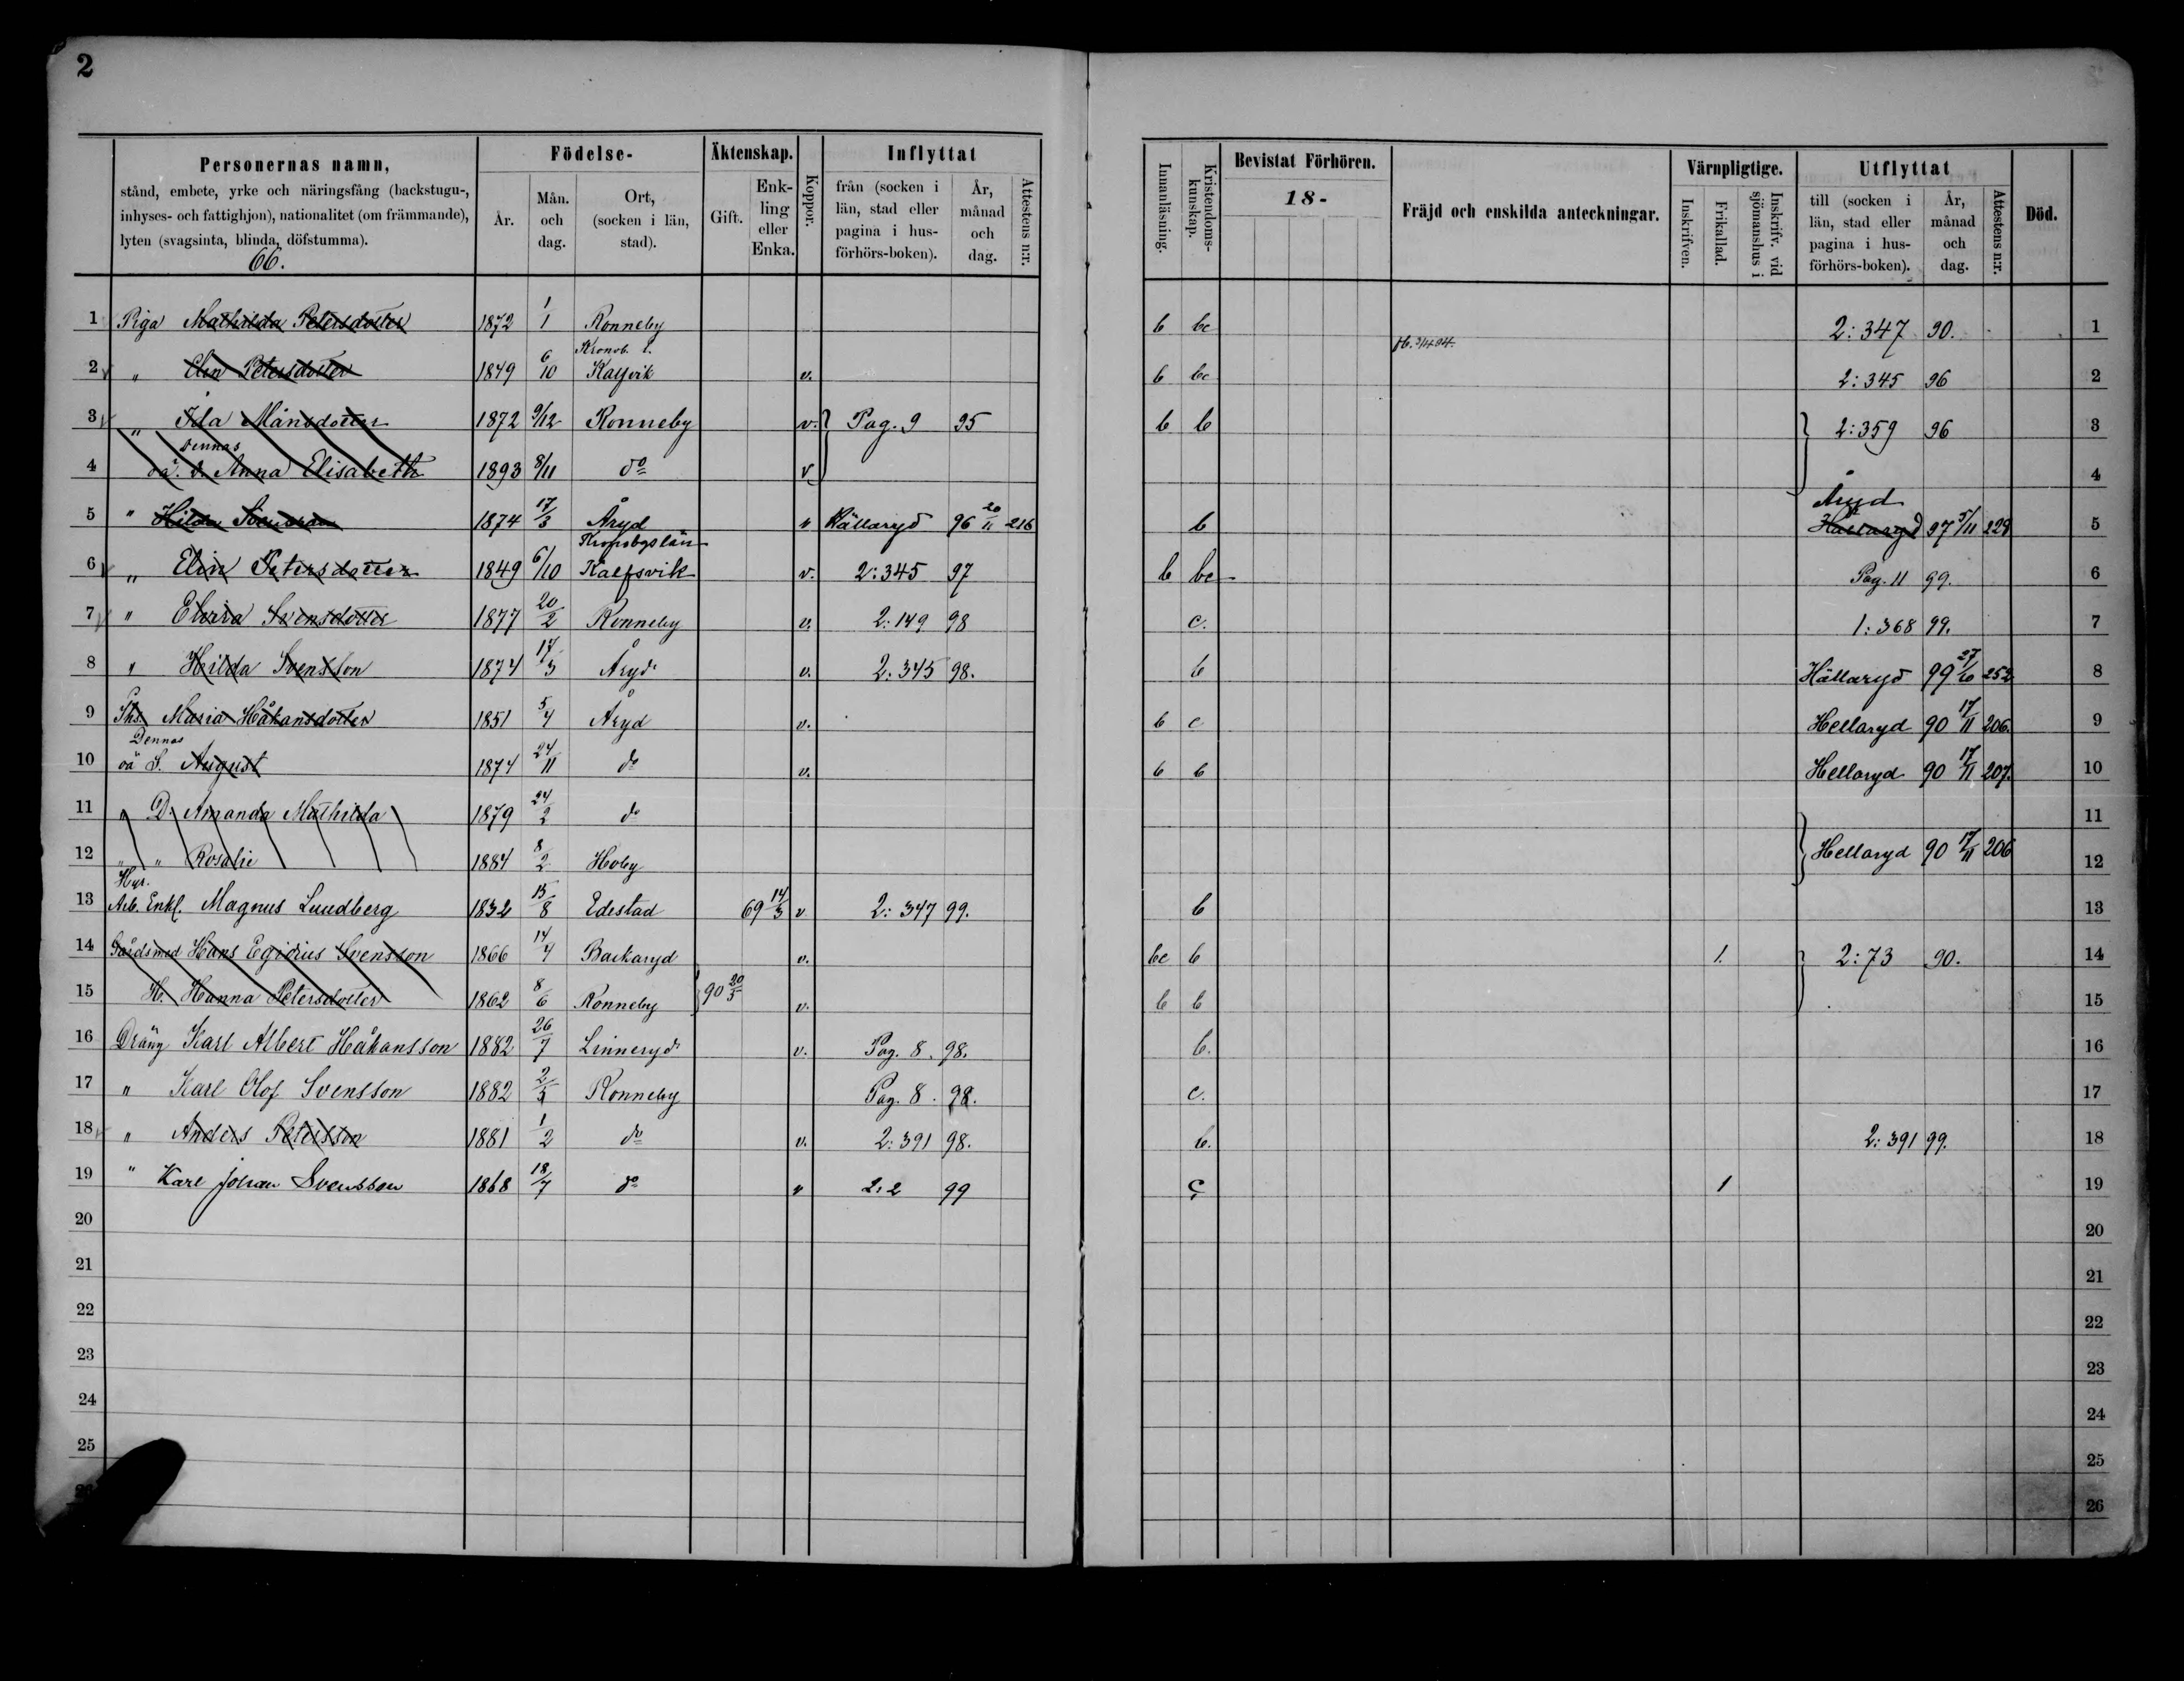 2
Personernas namn,
stånd, embete, yrke och näringsfång (backstugu-, inhyses- och fattighjon), nationalitet (om främmande), lyten (svagsinta, blinda, döfstumma).
66.
Födelse-
År. Mån. och dag. Ort, (socken i län, stad).
Äktenskap.
Gift. Enkling eller Enka.
Koppor.
Inflyttat
från (socken i län, stad eller pagina i husförhörs-boken). År, månad och dag. Attestens n:r.
Innanläsning. Kristendoms-kunskap.
Bevistat Förhören.
18-
Fräjd och enskilda anteckningar.
Värnpligtige.
Inskrifven. Frikallad. Inskrifv. vid sjömanshus i
Utflyttat
till (socken i län, stad eller pagina i husförhörs-boken). År, månad och dag. Attestens n:r.
Död.
1 Piga Mathilda Petersdotter 1872 1/1 Ronneby b bc 2:347 90. 1
Kronob. l.
2 " Elin Petersdotter 1849 6/10 Kalfvik v. b bc 2:345 96 2
3 " Ida Månsdotter 1872 9/12 Ronneby v. Pag. 9 95 b b 2:359 96 3
Dennas
4 oä. d. Anna Elisabeth 1893 8/11 do v 4
Åryd
5 " Hilda Svensson 1874 17/3 Åryd " Hällaryd 96 20/11 216 b Hällaryd 97 5/11 229 5
Kronobgs län
6 " Elin Petersdotter 1849 6/10 Kalfsvik v. 2:345 97 b bc Pag. 11 99. 6
7 " Elvira Svensdotter 1877 20/2 Ronneby v. 2:149 98 c. 1:368 99. 7
8 " Hilda Svensson 1874 17/3 Åryd v. 2:345 98. b Hällaryd 99 27/10 252 8
9 Maria Håkansdotter 1851 5/4 Åryd v. b c Hellaryd 90 17/11 206. 9
Dennas
10 oä S. August 1874 24/11 do v. b b Hellaryd 90 17/11 207. 10
11 " D. Amanda Mathilda 1879 24/2 do 11
12 " " Rosalie 1884 8/2 Hoby Hellaryd 90 17/11 206 12
Hyr.
13 Arb. Enkl. Magnus Lundberg 1832 15/8 Edestad 69 14/3 v 2:347 99. b 13
14 Gårdsmed Hans Egidius Svensson 1866 14/4 Backaryd v. bc b 1. 2:73 90. 14
15 H. Hanna Petersdotter 1862 8/6 Ronneby 90 20/5 v. b b 15
16 Dräng Karl Albert Håkansson 1882 26/7 Linneryd v. Pag. 8. 98. b. 16
17 " Karl Olof Svensson 1882 2/3 Ronneby Pag. 8. 98. c. 17
18 " Anders Petersson 1881 1/2 do v. 2:391 98. b. 2:391 99. 18
19 " Karl Johan Svensson 1868 18/7 do " 2:2 99 c 1 19
20 20
21 21
22 22
23 23
24 24
25 25
26 26